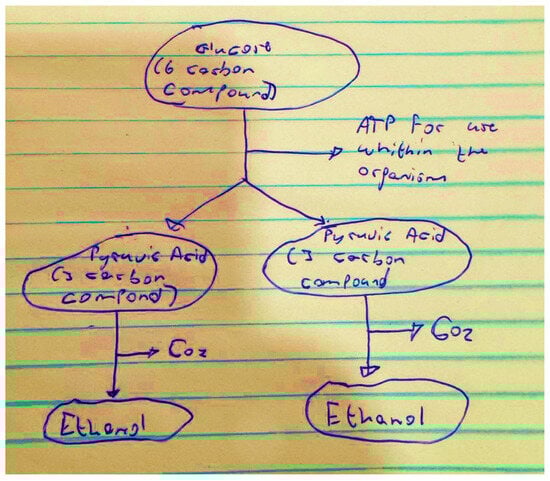 Glucose
(6 carbon
compound)
ATP for use
whithin the
organism
Pyruvic Acid
(3 carbon
compond)
Pyruvic Acid
(3 carbon
compound
CO2
CO2
Ethanol
Ethanol